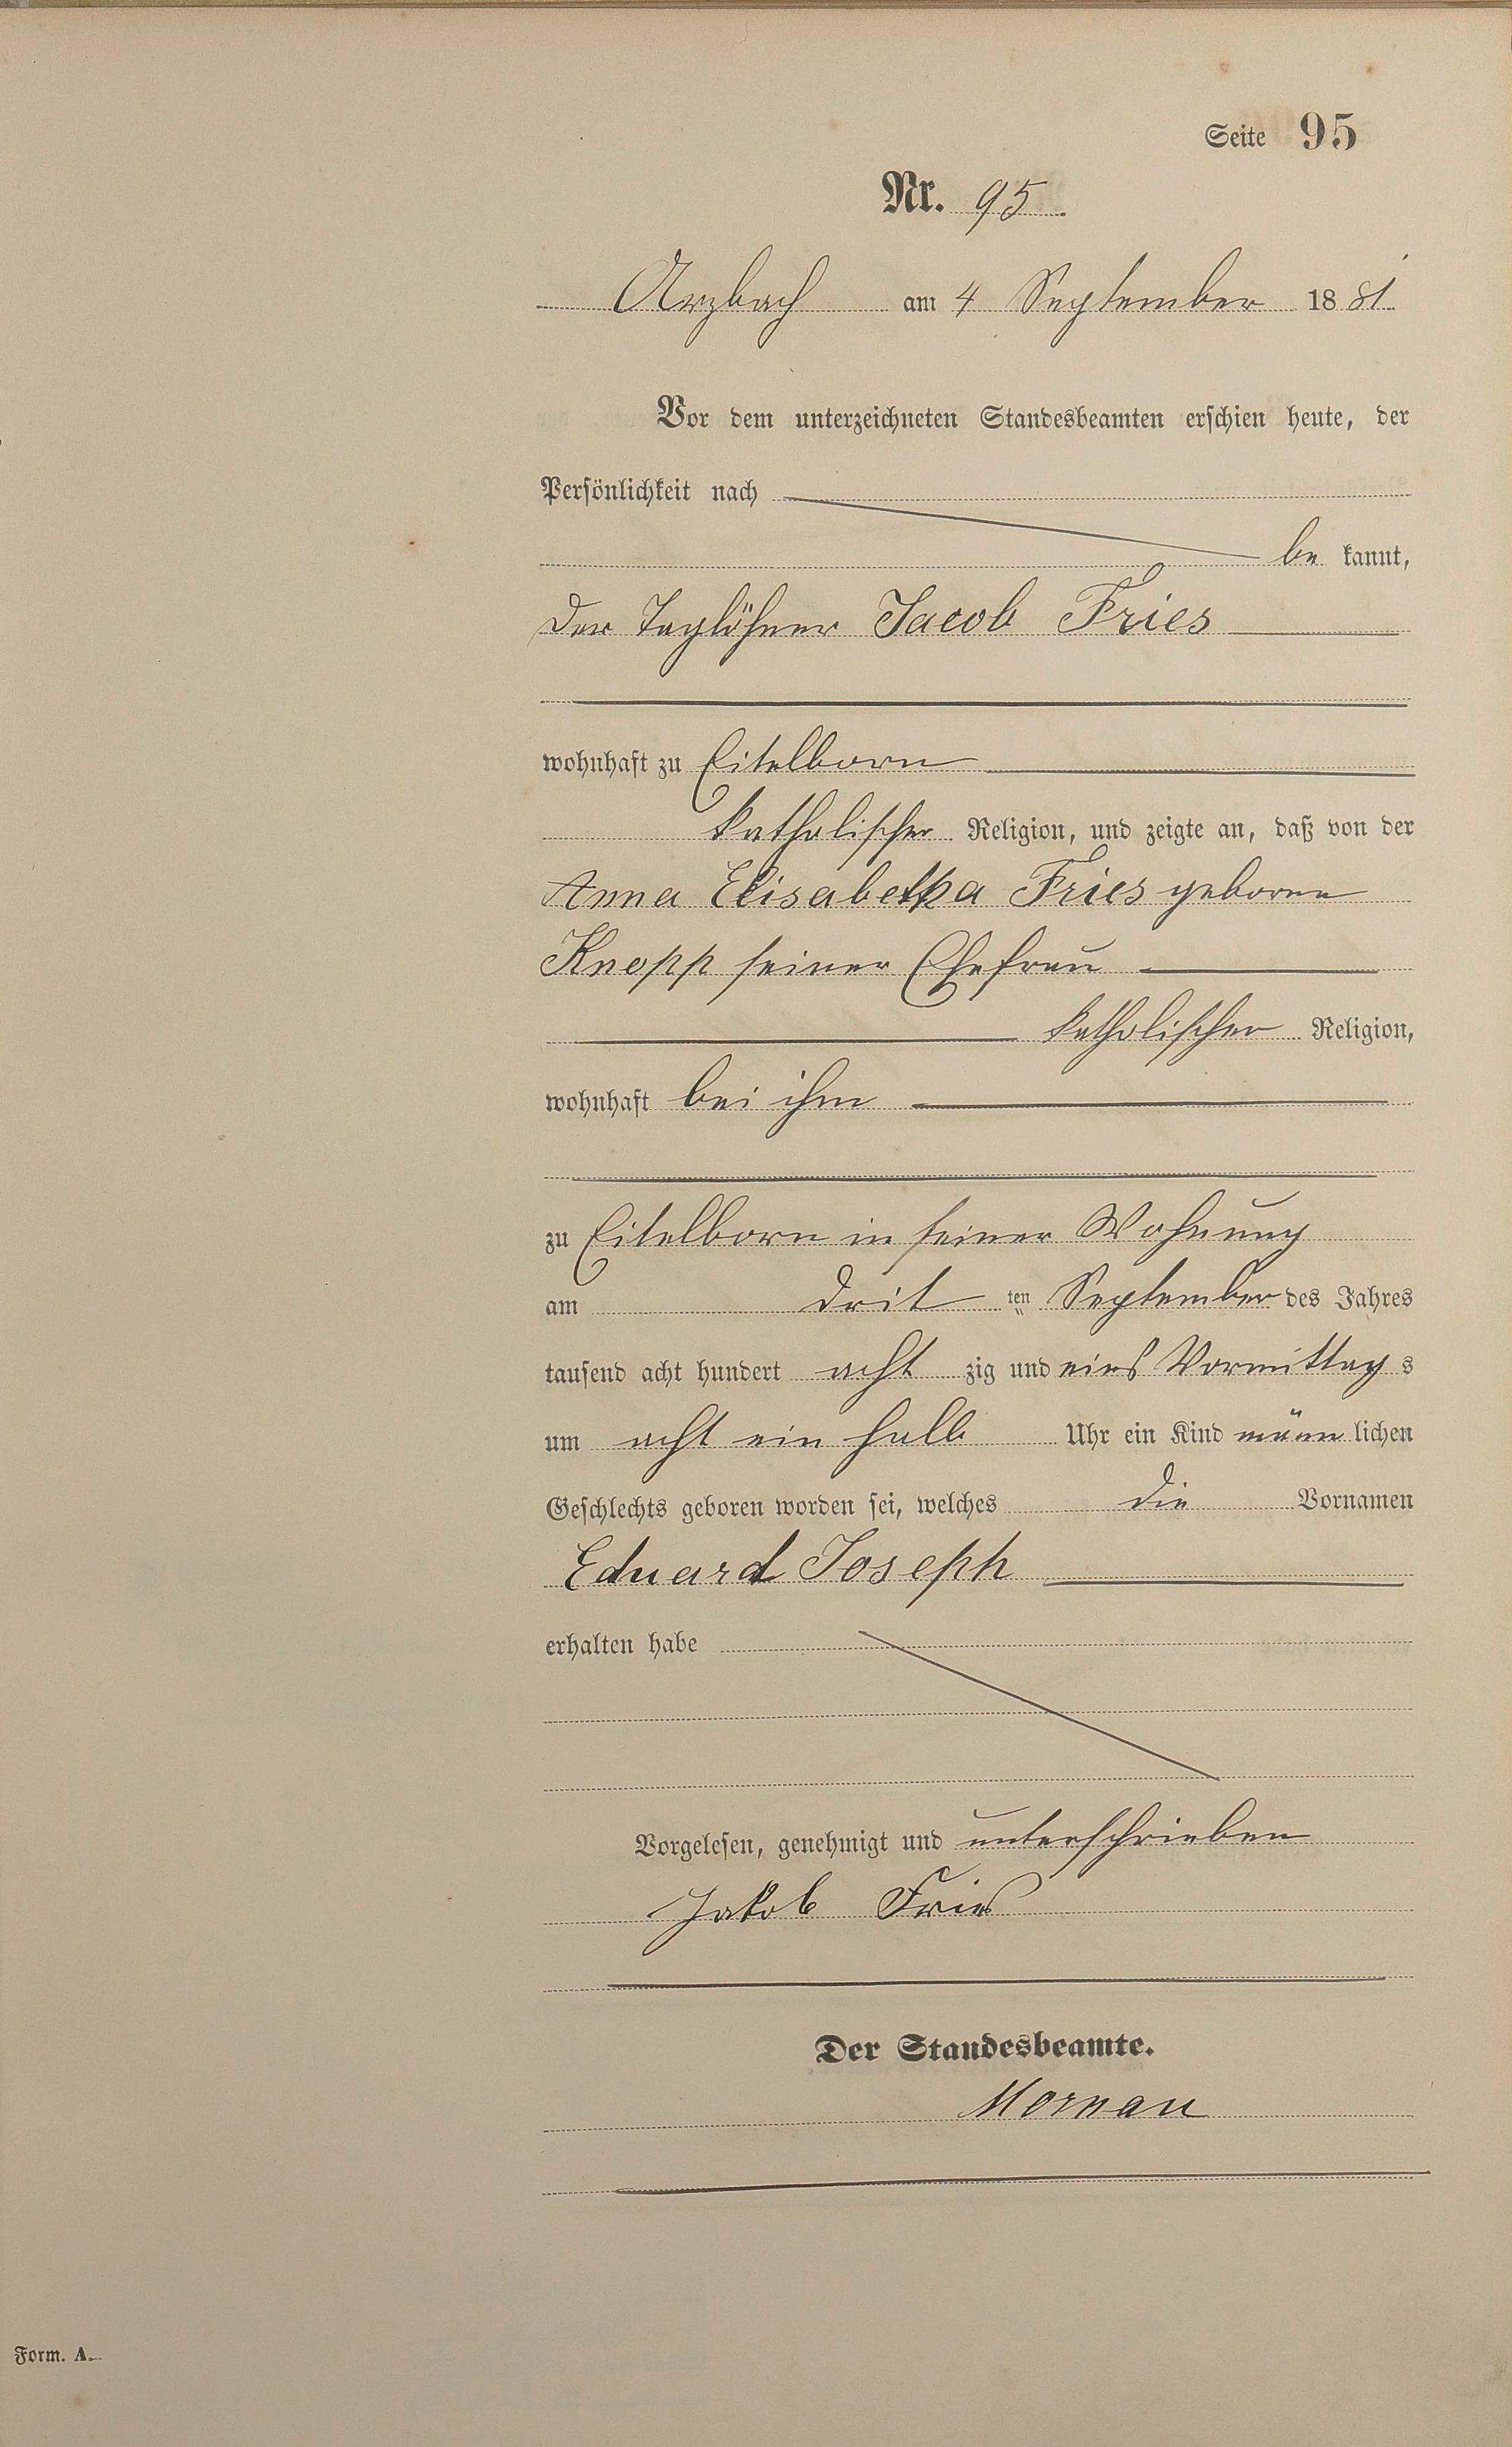 Seite 95
Nr. 95.
Arzbach am 4 September 1881.
Vor dem unterzeichneten Standesbeamten erschien heute, der
Persönlichkeit nach
be kannt,
der Taglöhner Jacob Fries
wohnhaft zu Eitelborn
katholischer Religion, und zeigte an, daß von der
Anna Elisabetha Fries geborne
Knopp seiner Ehefrau
katholischer Religion,
wohnhaft bei ihm
zu Eitelborn in seiner Wohnung
am drit ten September des Jahres
tausend acht hundert acht zig und eins Vormittag s
um acht ein halb Uhr ein Kind männ lichen
Geschlechts geboren worden sei, welches die Vornamen
Eduard Joseph
erhalten habe
Vorgelesen, genehmigt und unterschrieben
Jakob Fries
Der Standesbeamte.
Mornau
Form. A.